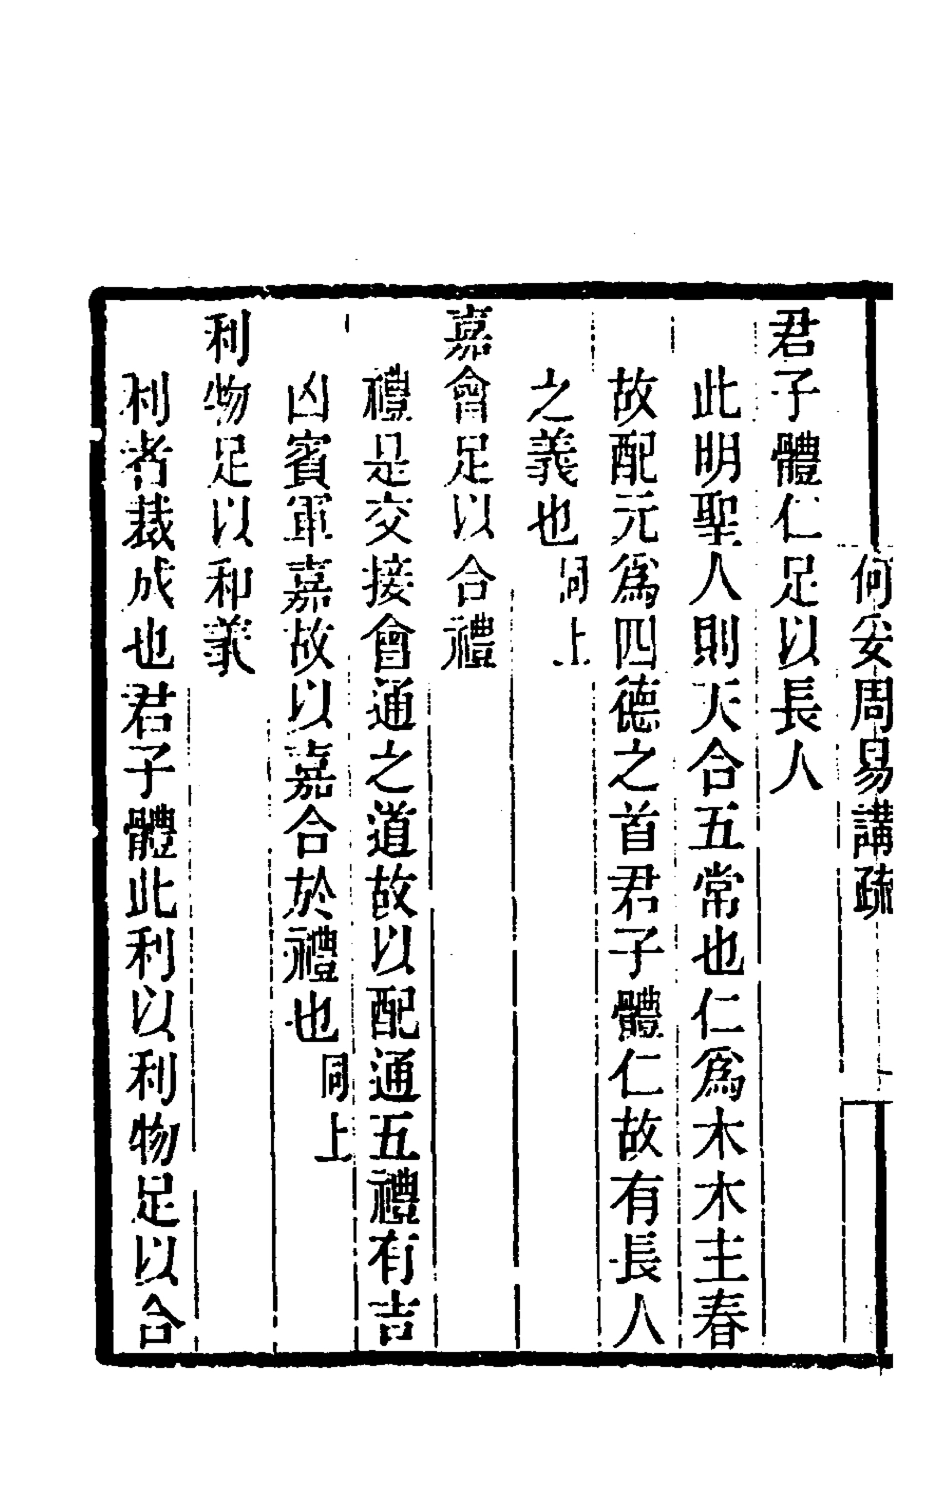 何妥周易講疏
君子體仁足以長人
此明聖人則天合五常也仁爲木木主春
故配元爲四德之首君子體仁故有長人
之義也同上
嘉會足以合禮
禮是交接會通之道故以配通五禮有吉
凶賓軍嘉故以嘉合於禮也同上
利物足以和義
利者裁成也君子體此利以利物足以合